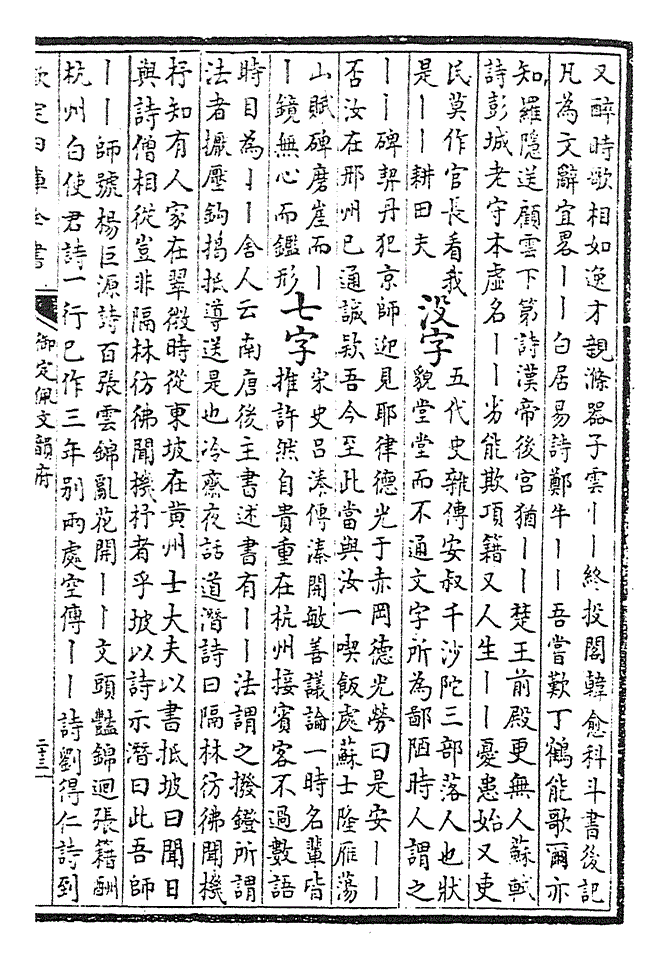 又醉時歌相如逸才親滌器子雲丨丨終投閣韓愈科斗書後記
凡為文辭宜畧丨丨白居易詩鄭牛丨丨吾嘗歎丁鶴能歌爾亦
知羅隱送顧雲下第詩漢帝後宮猶丨丨楚王前殿更無人蘇軾
詩彭城老守本虛名丨丨劣能欺項籍又人生丨丨憂患始又吏
民莫作官長看我是丨丨耕田夫
没字
五代史雜傳安叔千沙陀三部落人也狀貌堂堂而不通文字所為鄙陋時人謂之
丨丨碑契丹犯京師迎見耶律德光于赤岡德光勞曰是安丨丨
否汝在邢州已通誠欵吾今至此當與汝一喫飯處蘇士隆雁蕩
山賦碑磨崖而丨丨鏡無心而鑑形
七字
宋史呂溱傳溱開敏善議論一時名輩皆推許然自貴重在杭州接賓客不過數語
時目為丨丨舍人云南唐後主書述書有丨丨法謂之撥鐙所謂
法者擫壓鉤揭抵導送是也冷齋夜話道潛詩曰隔林彷彿聞機
杼知有人家在翠微時從東坡在黄州士大夫以書抵坡曰聞日
與詩僧相從豈非隔林彷彿聞機杼者乎坡以詩示潛曰此吾師
丨丨師號楊巨源詩百張雲錦亂花開丨丨文頭豔錦迴張籍酬
杭州白使君詩一行已作三年别兩處空傳丨丨詩劉得仁詩到
欽定四庫全書
御定佩文韻府
二十三